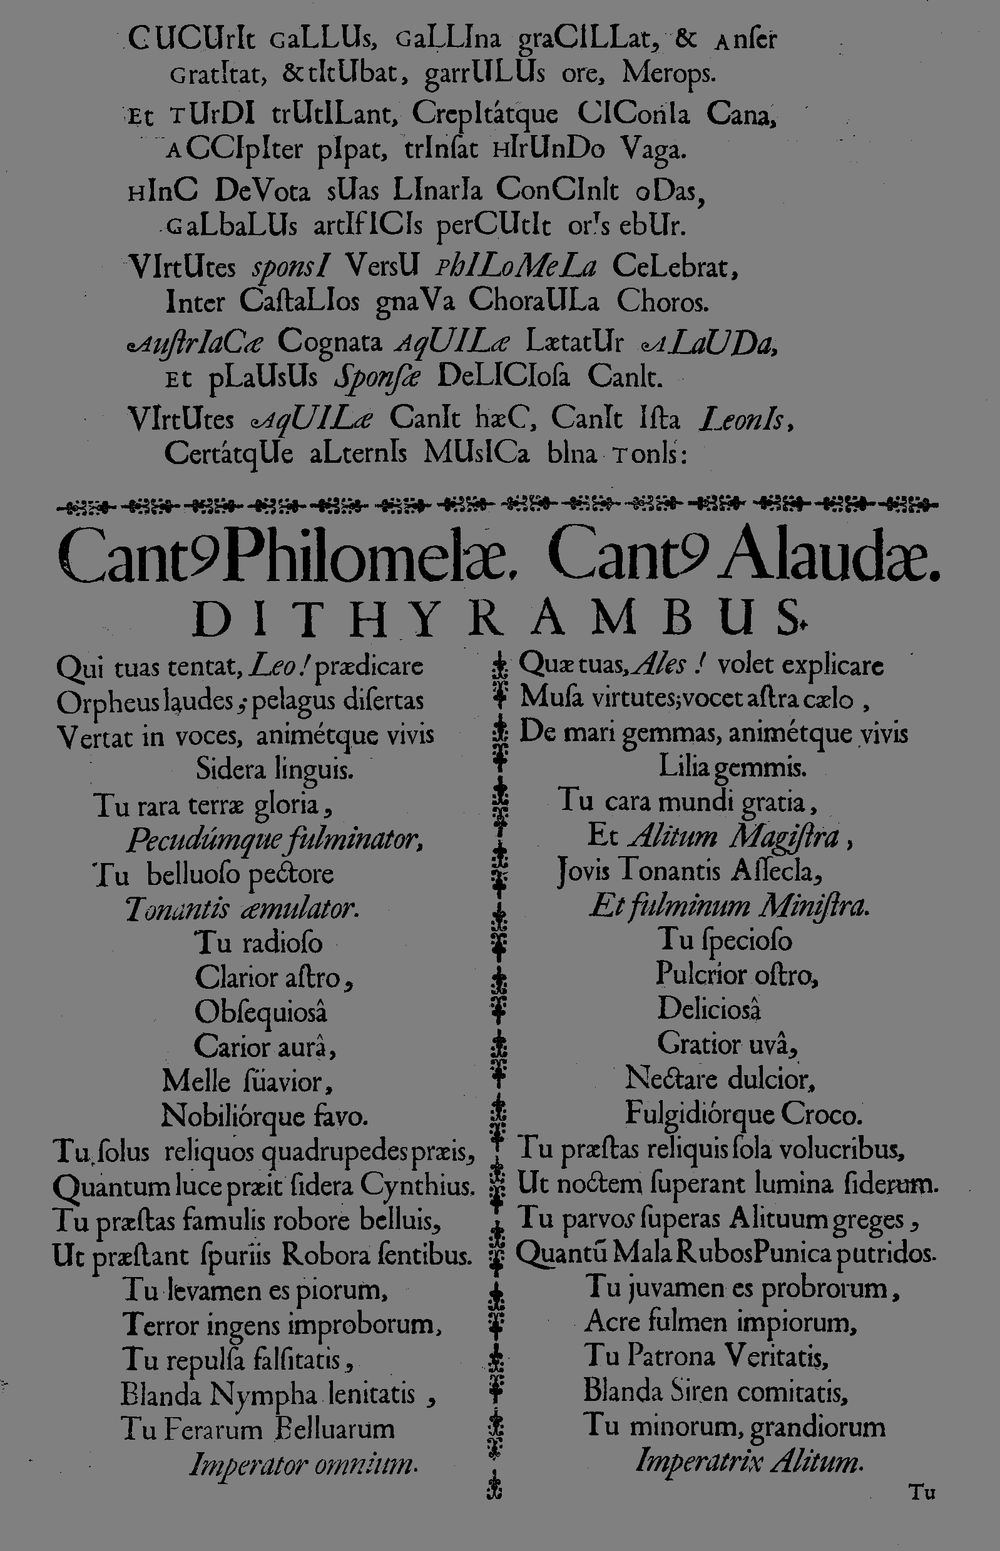 CUCUrIt GaLLUs, GaLLIna graCILLat, & Anſer
GratItat, & tItUbat, garrULUs ore, Merops.
Et TUrDI trUtILant, CrepItátque CIConIa Cana,
ACCIpIter pIpat, trInſat HIrUnDo Vaga.
HInC DeVota sUas LInarIa ConCInIt oDas,
GaLbaLUs artIfICIs perCUtIt orIs ebUr.
VIrtUtes sponsI VersU PhILoMeLa CeLebrat,
Inter CaſtaLIos gnaVa ChoraULa Choros.
AuſtrIaCæ Cognata AqUILæ LætatUr ALaUDa,
Et pLaUsUs Sponſæ DeLICIoſa CanIt.
VIrtUtes AqUILæ CanIt hæC, CanIt Iſta LeonIs,
CertátqUe aLternIs MUsICa bIna TonIs:
Cantꝯ Philomelæ. Cantꝯ Alaudæ.
DITHYRAMBUS.
Qui tuas tentat, Leo! prædicare
Orpheus laudes; pelagus diſertas
Vertat in voces, animétque vivis
Sidera linguis.
Tu rara terræ gloria,
Pecudúmque fulminator,
Tu belluoſo pectore
Tonantis æmulator.
Tu radioſo
Clarior aſtro,
Obſequiosâ
Carior aurâ,
Melle ſüavior,
Nobiliórque favo.
Tu ſolus reliquos quadrupedes præis,
Quantum luce præit ſidera Cynthius.
Tu præſtas famulis robore belluis,
Ut præſtant ſpuriis Robora ſentibus.
Tu levamen es piorum,
Terror ingens improborum,
Tu repulſa falſitatis,
Blanda Nympha lenitatis,
Tu Ferarum Belluarum
Imperator omnium.
Quæ tuas, Ales! volet explicare
Muſa virtutes; vocet aſtra cælo,
De mari gemmas, animétque vivis
Lilia gemmis.
Tu cara mundi gratia,
Et Alitum Magiſtra,
Jovis Tonantis Aſſecla,
Et fulminum Miniſtra.
Tu ſpecioſo
Pulcrior oſtro,
Deliciosâ
Gratior uvâ,
Nectare dulcior,
Fulgidiórque Croco.
Tu præſtas reliquis ſola volucribus,
Ut noctem ſuperant lumina ſiderum.
Tu parvos ſuperas Alituum greges,
Quantũ Mala Rubos Punica putridos.
Tu juvamen es probrorum,
Acre fulmen impiorum,
Tu Patrona Veritatis,
Blanda Siren comitatis,
Tu minorum, grandiorum
Imperatrix Alitum.
Tu